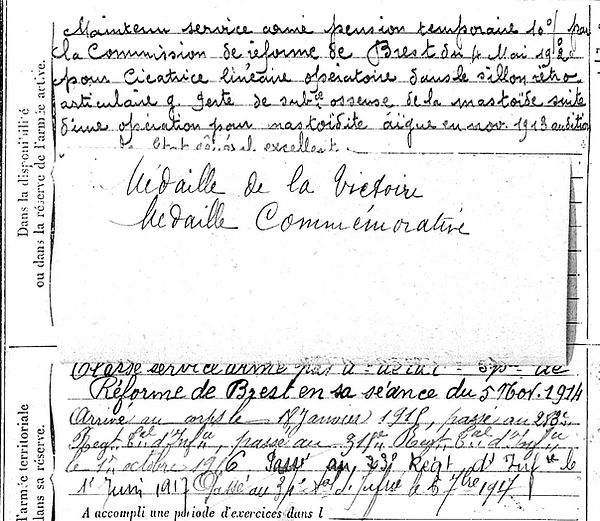 Maintenu service armé pension temporaire 10% par
la Commission de réforme de Brest du 4 Mai 192
pour Cicatrice linéaire opératoire dans le sillon rétro
articulaire g. Perte de subce osseuse de la mastoïde suite
d'une opération pour mastoïdite aïgue en nov. 1913 audition
Etat général excellent.
Médaille de la Victoire
Médaille Commémorative
Dans la disponibilité
ou dans la réserve de l'armée active.
Classe service armé par
Réforme de Brest en sa séance du 5 Nov. 1914
Arrivé au corps le Janvier 1915, passé au
Regt d'Infie, passé au 318e Regt d'Infie
le 1er octobre 1916 Passé au Regt d'Infie le
1er Juin 1917 Passé au d'Infie le 1917
l'armée territoriale
dans sa réserve.
A accompli une période d'exercices dans l